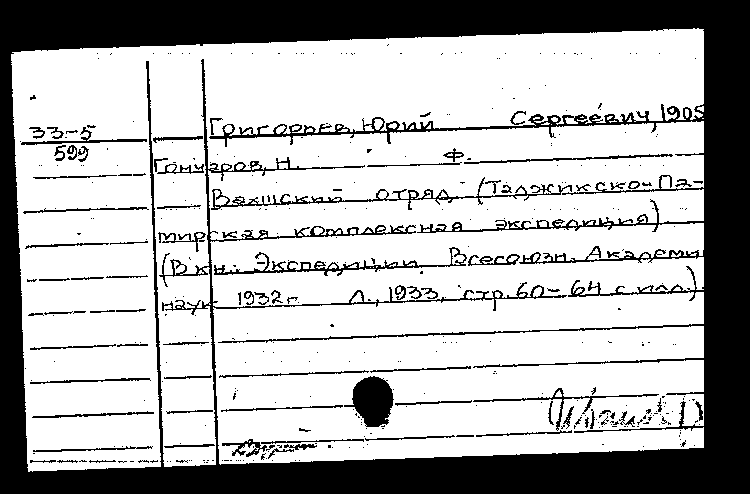 33-5
599
Григорьев, Юрий Сергеевич, 1905
Гончаров, Н. Ф.
Вахшский отряд (Таджикско-Па-
мирская комплексная экспедиция)
(В кн.: Экспедиции Всесоюзн. Академи
наук 1932 г. Л., 1933, стр. 60-64 с илл.)